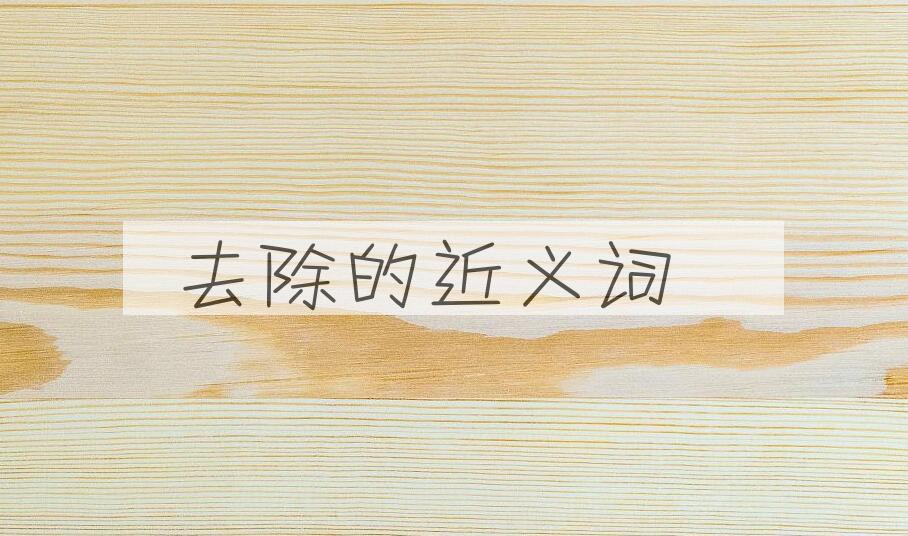 去除的近义词